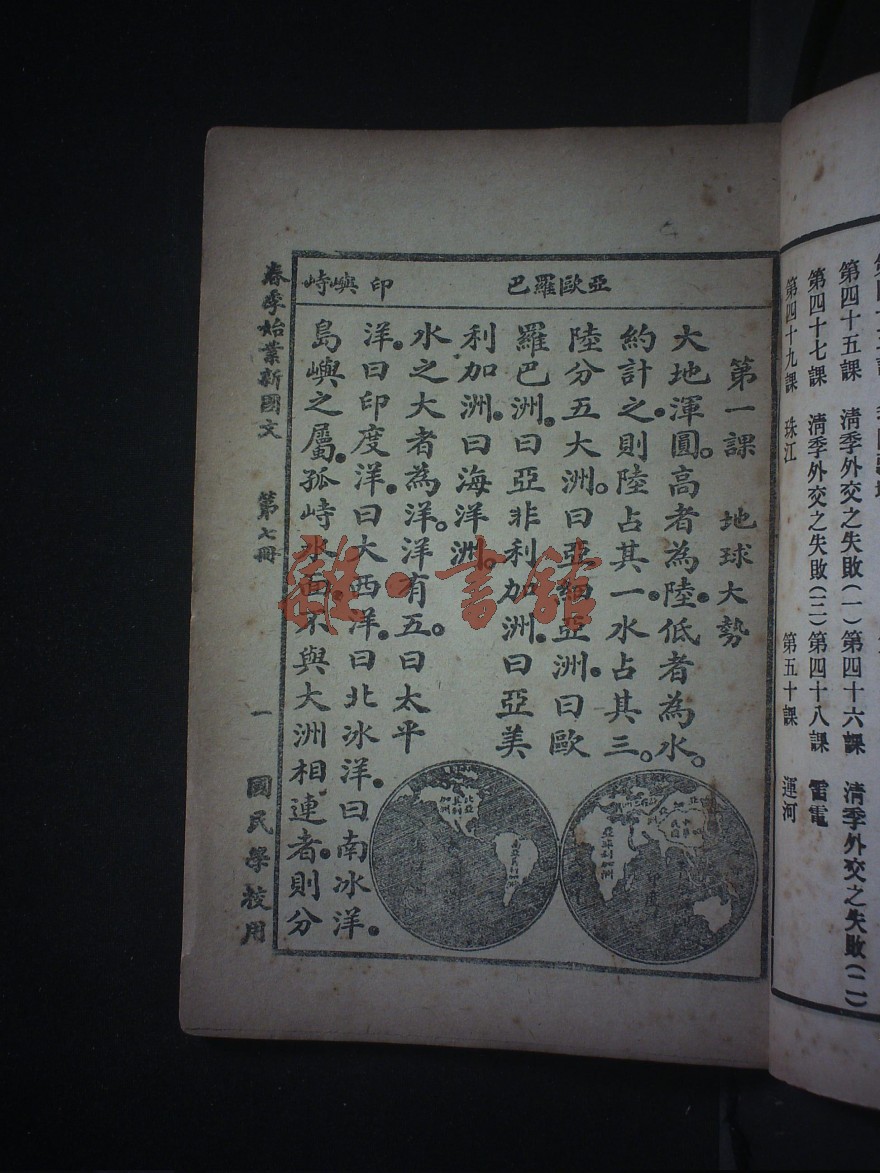 第四十五課 清季外交之失敗(一) 第四十六課 清季外交之失敗(二)
第四十七課 清季外交之失敗(三) 第四十八課 雷電
第四十九課 珠江 第五十課 運河
亞歐羅巴 印 嶼峙
第一課 地球大勢
大地渾圓。高者為陸。低者為水。
約計之。則陸占其一。水占其三。
陸分五大洲。曰亞細亞洲。曰歐
羅巴洲。曰亞非利加洲。曰亞美
利加洲。曰海洋洲。
水之大者為洋。洋有五。曰太平
洋。曰印度洋。曰大西洋。曰北冰洋。曰南冰洋。
島嶼之屬。孤峙水面。不與大洲相連者。則分
春季始業新國文 第七冊 一 國民學校用
亞非利加洲
中華民國
印度
北亞美利加洲
南亞美利加洲
雜·書館